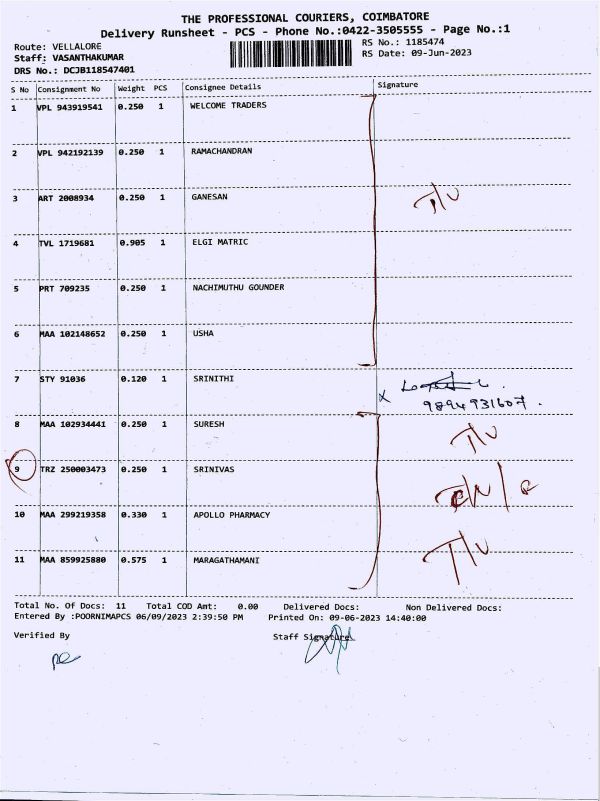 THE PROFESSIONAL COURIERS, COIMBATORE
Delivery Runsheet - PCS - Phone No.:0422-3505555 - Page No.:1
Route: VELLALORE
RS No.: 1185474
Staff: VASANTHAKUMAR
RS Date: 09-Jun-2023
DRS No.: DCJB118547401
S No Consignment No Weight PCS Consignee Details Signature
1 VPL 943919541 0.250 1 WELCOME TRADERS
2 VPL 942192139 0.250 1 RAMACHANDRAN
3 ART 2008934 0.250 1 GANESAN T/U
4 TVL 1719681 0.905 1 ELGI MATRIC
5 PRT 709235 0.250 1 NACHIMUTHU GOUNDER
6 MAA 102148652 0.250 1 USHA
7 STY 91036 0.120 1 SRINITHI x
9894931607.
8 MAA 102934441 0.250 1 SURESH T/U
9 TRZ 250003473 0.250 1 SRINIVAS
10 MAA 299219358 0.330 1 APOLLO PHARMACY
11 MAA 859925880 0.575 1 MARAGATHAMANI T/U
Total No. Of Docs: 11 Total COD Amt: 0.00 Delivered Docs: Non Delivered Docs:
Entered By :POORNIMAPCS 06/09/2023 2:39:50 PM Printed On: 09-06-2023 14:40:00
Verified By Staff Signature